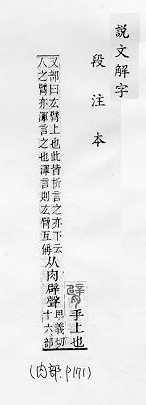 說文解字
段注本
臂
手上也
又部曰厷臂上也此皆析言之亦下云
人之臂亦渾言之也渾言則厷臂互偁
从肉辟聲
卑義切
十六部
(肉部. P171)